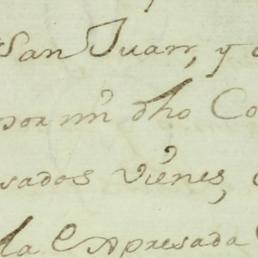 San Juan, y
por mi dho Co
sados vienes,
la Expresada